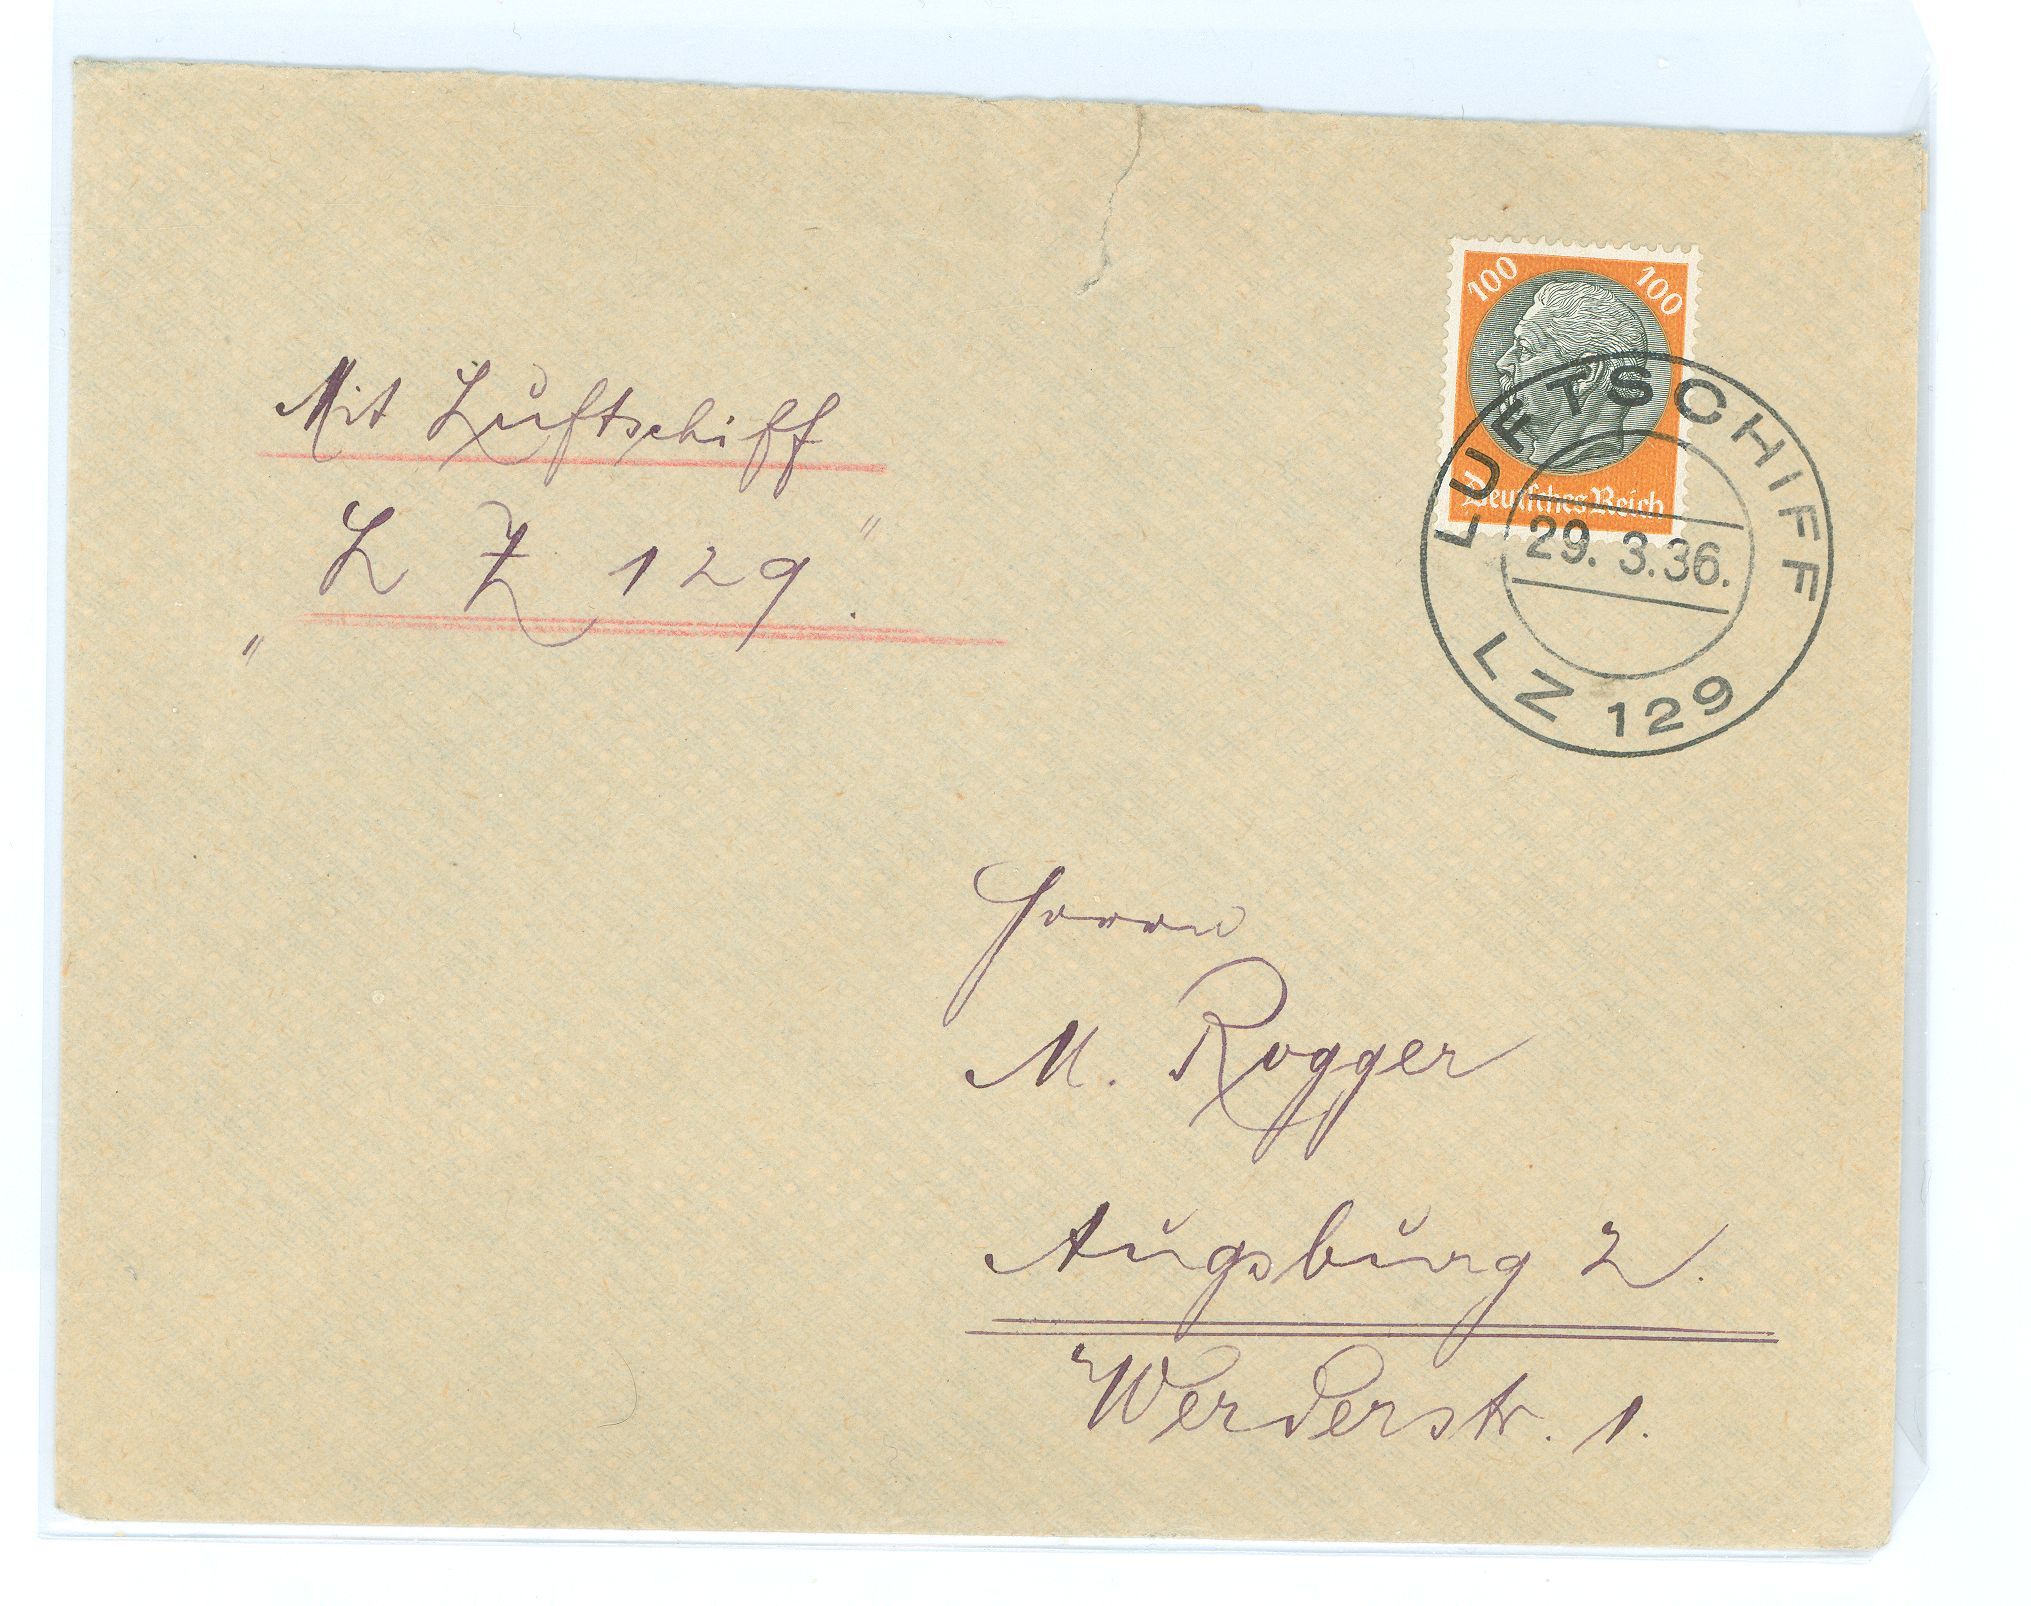 100 100
Deutsches Reich
LUFTSCHIFF
29. 3.36.
LZ 129
Mit Luftschiff
„L Z 129“.
Herrn
M. Rogger
Augsburg 2.
Werderstr. 1.